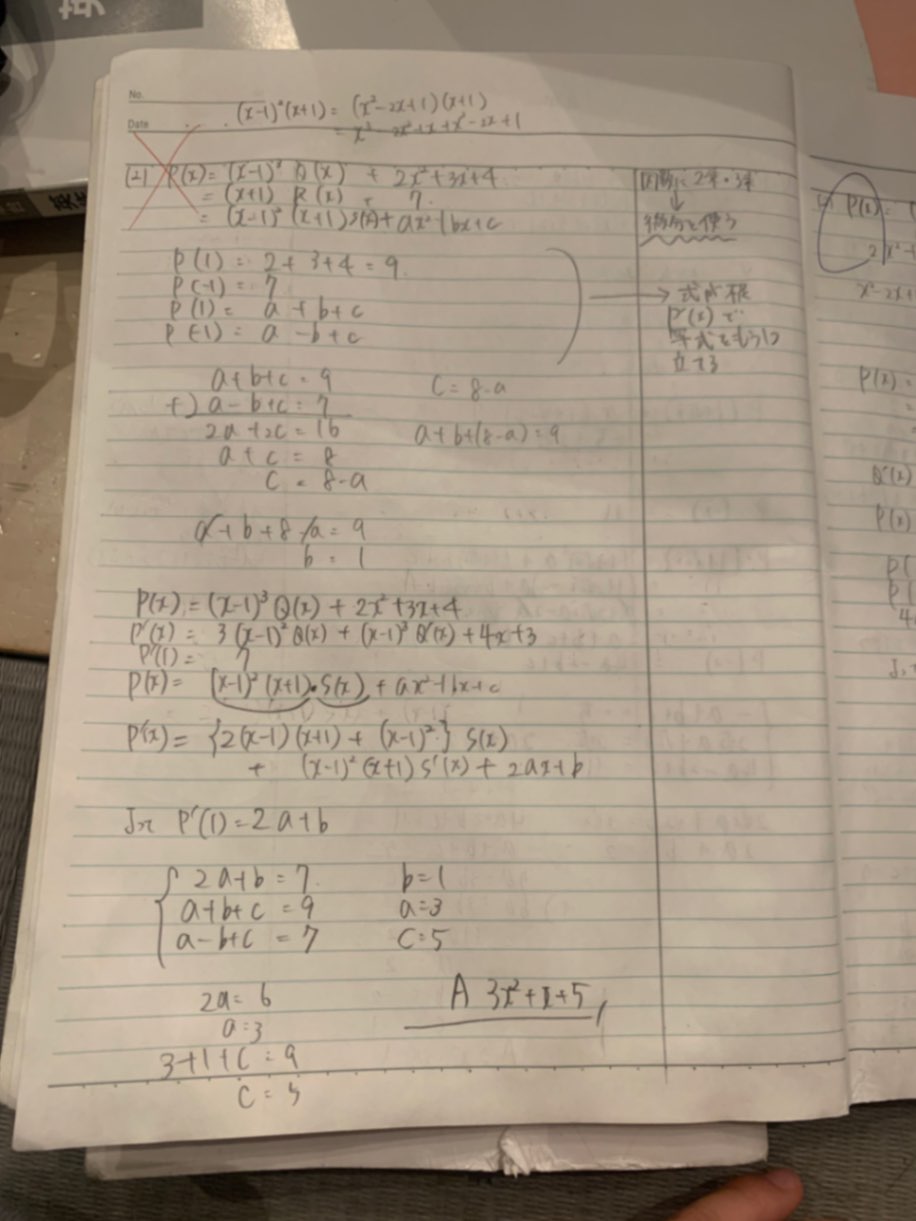 No.
Date
(x-1)²(x+1) = (x²-2x+1)(x+1)
= x³-2x²+x+x²-2x+1
(2) P(x) = (x-1)³ Q(x) + 2x²+3x+4
= (x+1) R(x) + 7.
= (x-1)²(x+1)S(x) + ax²+bx+c
P(1) = 2+3+4 = 9.
P(-1) = 7
P(1) = a+b+c
P(-1) = a-b+c
a+b+c = 9
c = 8-a
+) a-b+c = 7
2a+2c = 16
a+b+(8-a) = 9
a+c = 8
c = 8-a
a+b+8-a = 9
b = 1
P(x) = (x-1)³ Q(x) + 2x²+3x+4
P'(x) = 3(x-1)² Q(x) + (x-1)³ Q'(x) + 4x+3
P'(1) = 7
P(x) = (x-1)²(x+1)・S(x) + ax²+bx+c
P'(x) = {2(x-1)(x+1) + (x-1)²} S(x)
+ (x-1)²(x+1) S'(x) + 2ax+b
よって P'(1) = 2a+b
2a+b = 7.
a+b+c = 9
a-b+c = 7
b=1
a=3
c=5
2a = 6
a=3
3+1+c = 9
c = 5
A 3x²+x+5
2乗・3乗
↓
微分を使う
→ 式が
P'(x) で
等式をもう1つ
立てる
P(x) =
P(x) =
Q'(x)
P(x)
P(
P(